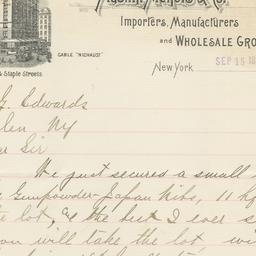 Importers, Manufacturers
and WHOLESALE GRO
CABLE "NICHAUST"
& Staple Streets.
New York
SEP 15 18
G. Edwards
len, NY
r Sir
We just secured a small
Gunpowder - Japan Nibs, 11 h
lot, & the best I ever s
ou will take the lot, wi